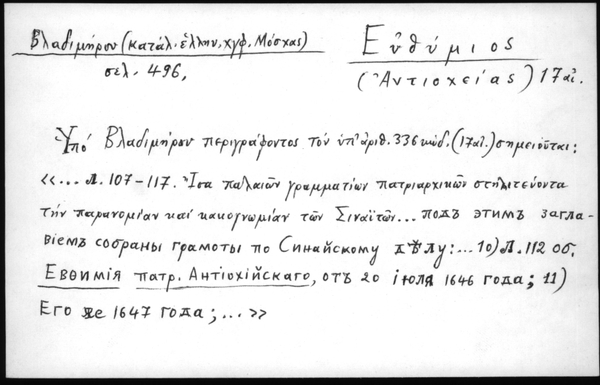 Βλαδιμήρου (κατάλ. ἑλλην. χγφ. Μόσχας)
σελ. 496.
Εὐθύμιος
(Ἀντιοχείας) 17 αἰ.
Ὑπό Βλαδιμήρου περιγράφοντος τόν ὑπ' ἀριθ. 336 κώδ. (17 αἰ.) σημειοῦται:
«... л. 107-117. Ἴσα παλαιῶν γραμματίων πατριαρχικῶν στηλιτεύοντα
τήν παρανομίαν καί κακογνωμίαν τῶν Σιναϊτῶν... подъ этимъ загла-
віемъ собраны грамоты по Синайскому дѣлу:... 10) л. 112 об.
Евѳимія патр. Антіохійскаго, отъ 20 іюля 1646 года; 11)
Его же 1647 года;... »